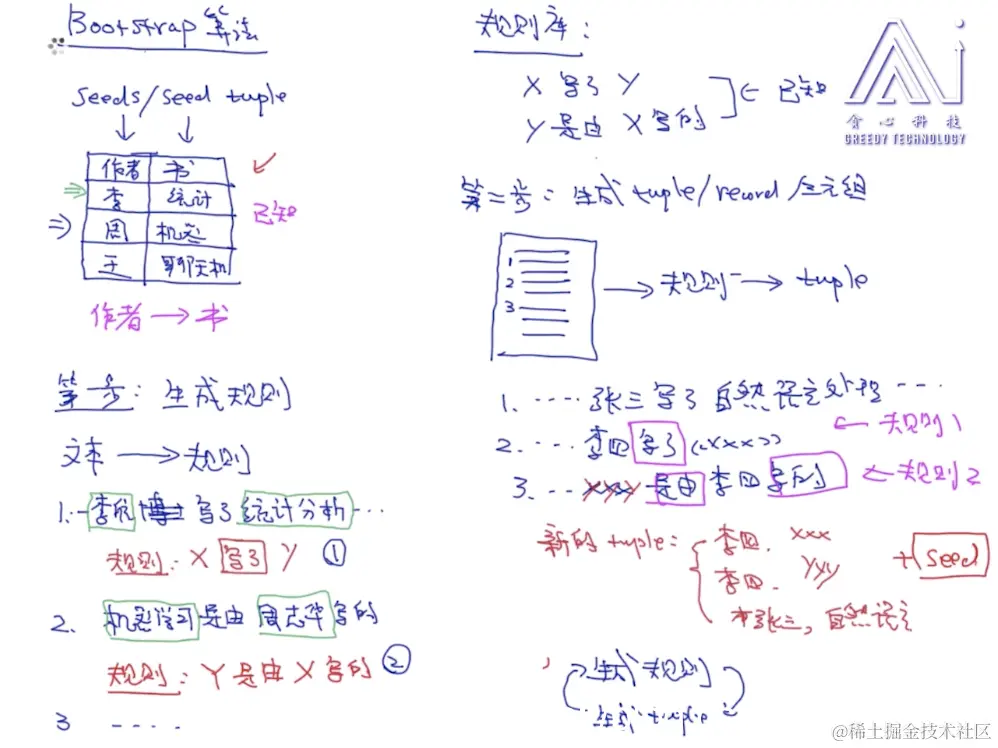 Bootstrap 算法
seeds/seed tuple
作者 书
李 统计
周 机器
王 聊天机
已知
作者 → 书
第一步: 生成规则
文本 → 规则
1. 李航博士写了统计分析...
规则: X 写了 Y ①
2. 机器学习是由周志华写的
规则: Y 是由 X 写的 ②
3 ....
规则库:
X 写了 Y
Y 是由 X 写的
← 已知
贪心科技
GREEDY TECHNOLOGY
第二步: 生成 tuple/record/三元组
1
2
3
→ 规则 → tuple
1. .... 张三写了自然语言处理 ....
2. .... 李四写了《xxx》 ← 规则1
3. ... yyy 是由李四写的 ← 规则2
新的 tuple:
李四. xxx
李四. yyy
张三, 自然语言
+ seed
生成规则
生成 tuple
@稀土掘金技术社区